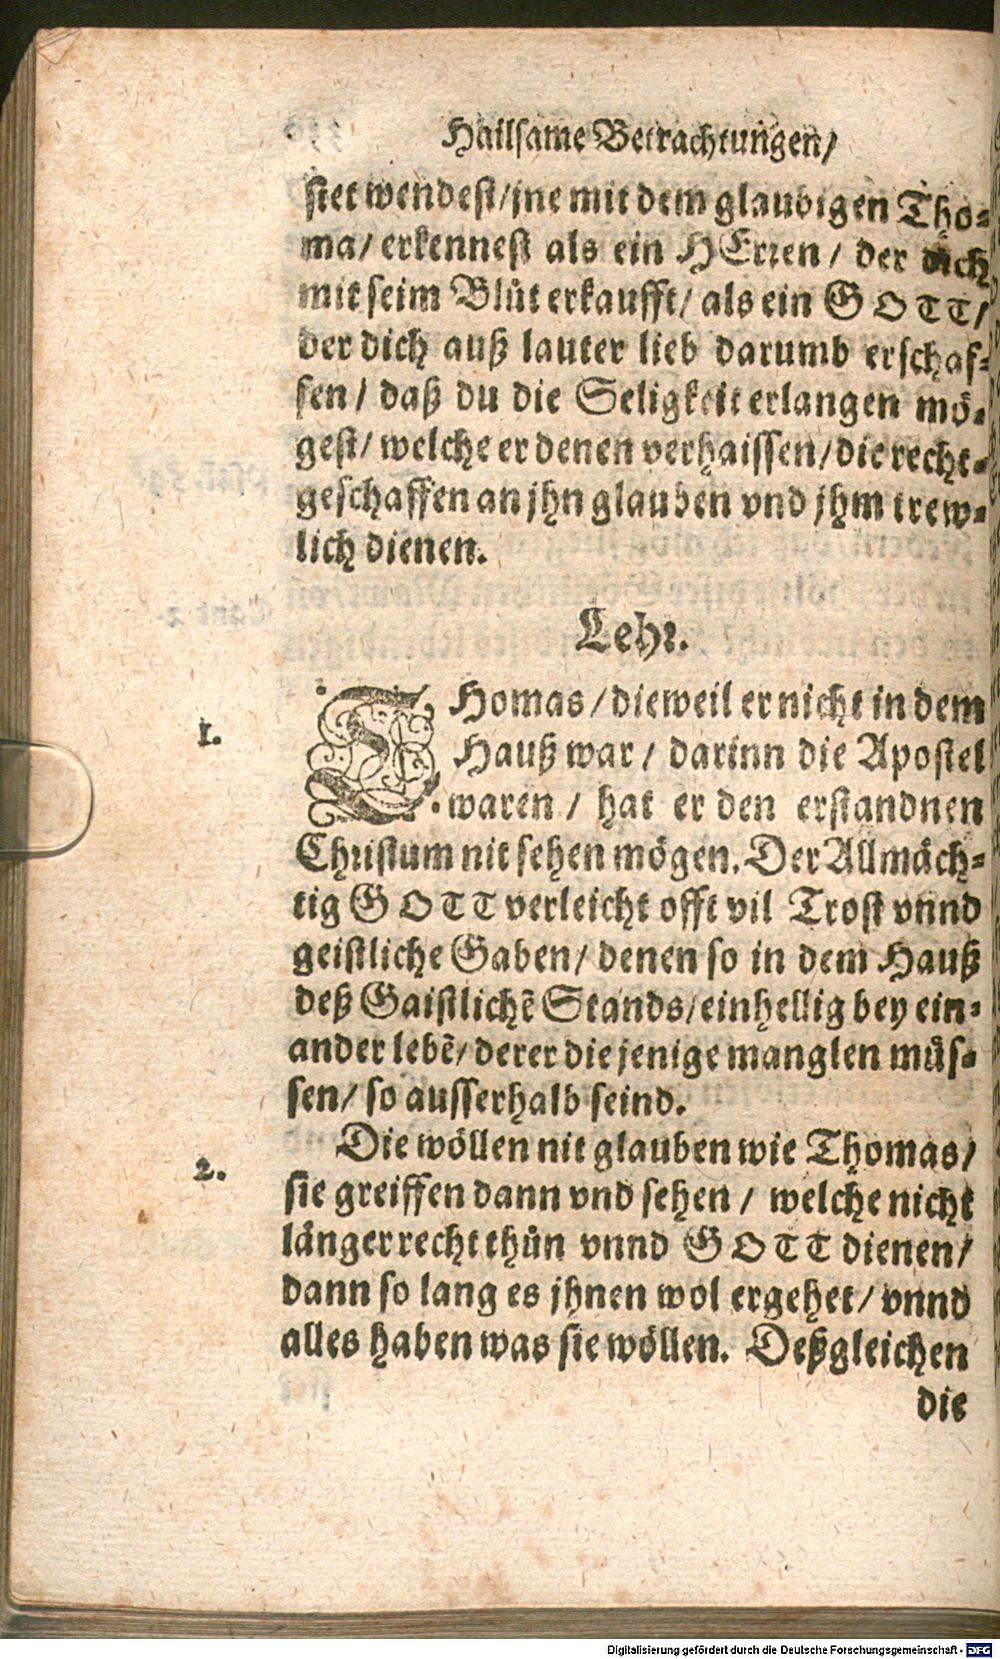 Hailsame Betrachtungen/
stet wendest/ jne mit dem glaubigen Tho-
ma/ erkennest als ein HErren/ der dich
mit seim Blůt erkaufft/ als ein GOTT/
der dich auß lauter lieb darumb erschaf-
fen/ daß du die Seligkeit erlangen mö-
gest/ welche er denen verhaissen/ die recht-
geschaffen an jhn glauben vnd jhm trew-
lich dienen.
Lehr.
1.
THomas/ dieweil er nicht in dem
Hauß war/ darinn die Apostel
waren/ hat er den erstandnen
Christum nit sehen mögen. Der Allmäch-
tig GOTT verleicht offt vil Trost vnnd
geistliche Gaben/ denen so in dem Hauß
deß Gaistlichẽ Stands/ einhellig bey ein-
ander lebẽ/ derer die jenige manglen müs-
sen/ so ausserhalb seind.
2.
Die wöllen nit glauben wie Thomas/
sie greiffen dann vnd sehen/ welche nicht
länger recht thůn vnnd GOTT dienen/
dann so lang es jhnen wol ergehet/ vnnd
alles haben was sie wöllen. Deßgleichen
die
Digitalisierung gefördert durch die Deutsche Forschungsgemeinschaft - DFG